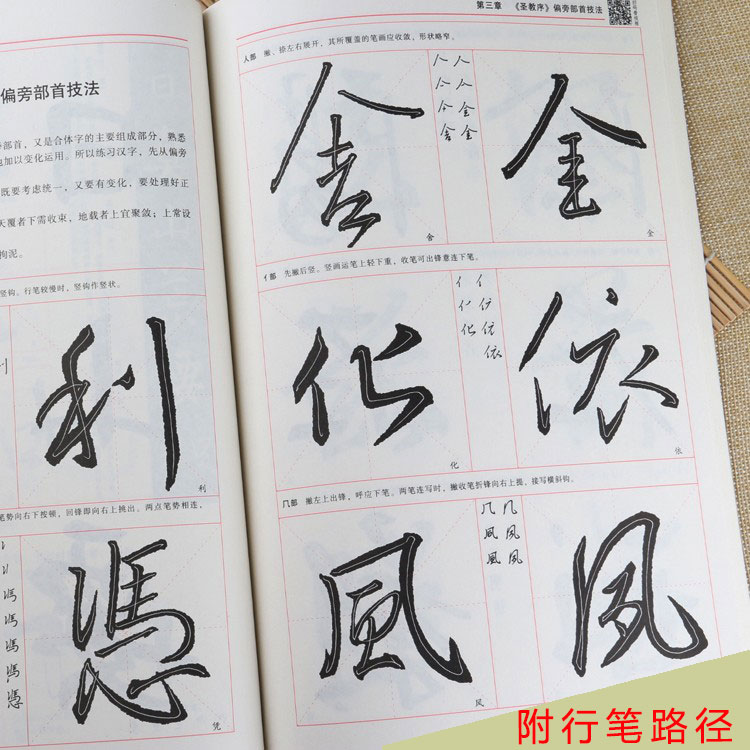 偏旁部首技法
部首，又是合体字的主要组成部分，熟悉
加以变化运用。所以练习汉字，先从偏旁
既要考虑统一，又要有变化，要处理好正
天覆者下需收束，地载者上宜聚敛；上常设
拘泥。
竖钩。行笔较慢时，竖钩作竖状。
利
利
笔势向右下按顿，回锋即向右上挑出。两点笔势相连，
憑
凭
第三章 《圣教序》偏旁部首技法
人部 撇、捺左右展开，其所覆盖的笔画应收敛，形状略窄。
舍
舍
金
金
亻部 先撇后竖。竖画运笔上轻下重，收笔可出锋意连下笔。
化
化
依
依
几部 撇左上出锋，呼应下笔。两笔连写时，撇收笔折锋向右上提，接写横斜钩。
風
风
夙
附行笔路径